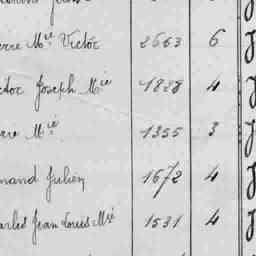 erre Mie Victor 2663 6
ctor Joseph Mie 1828 4
erre Mie 1355 3
mand Julien 1672 4
arles Jean Louis Mie 1531 4